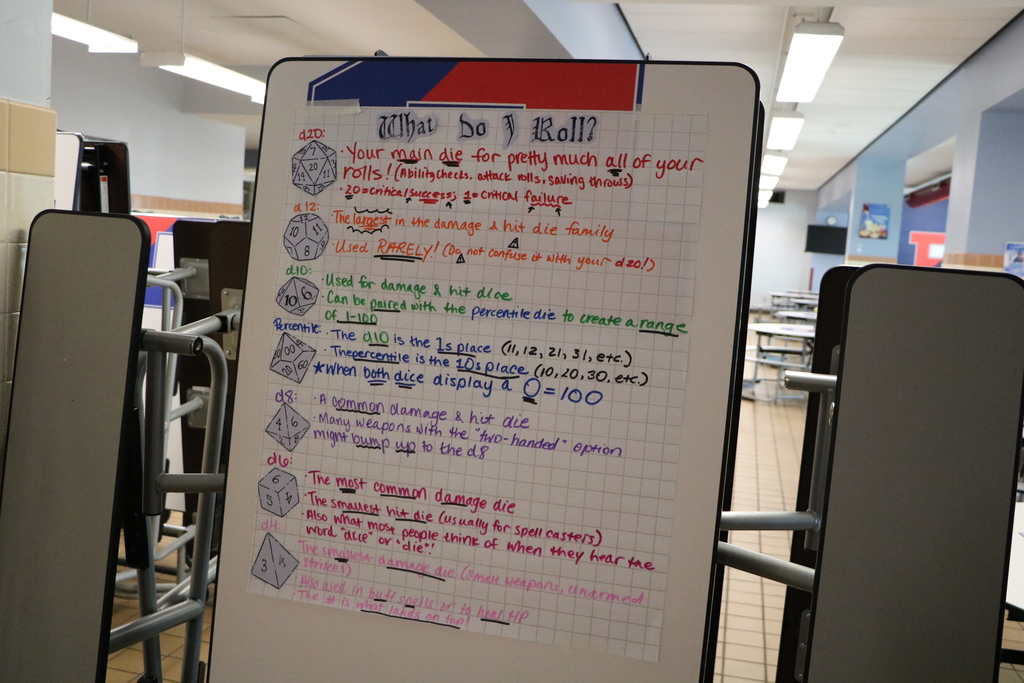 What Do I Roll?
d20:
· Your main die for pretty much all of your
rolls! (Ability Checks, attack rolls, saving throws)
· 20=critical success; 1=critical failure
d12:
The largest in the damage & hit die family
· Used RARELY! (Do not confuse it with your d20!)
d10:
· Used for damage & hit dice
· Can be paired with the percentile die to create a range
of 1-100
Percentile:
· The d10 is the 1s place (11, 12, 21, 31, etc.)
· The percentile is the 10s place (10, 20, 30, etc.)
★When both dice display a 0 = 100
d8:
· A common damage & hit die
· Many weapons with the "two-handed" option
might bump up to the d8
d6:
· The most common damage die
· The smallest hit die (usually for spell casters)
· Also what most people think of when they hear the
word "dice" or "die"!
d4:
The smallest damage die (small weapons, unarmed
strikes)
Also used in buff spells or to heal HP
The # is what lands on top!